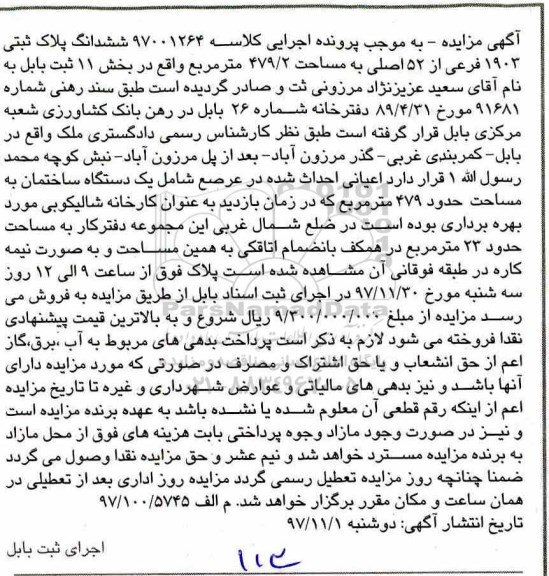 آگهی مزایده - به موجب پرونده اجرایی کلاسه ۹۷۰۰۱۲۶۴ ششدانگ پلاک ثبتی
۱۹۰۳ فرعی از ۵۲ اصلی به مساحت ۴۷۹/۲ مترمربع واقع در بخش ۱۱ ثبت بابل به
نام آقای سعید عزیزنژاد مرزونی ثت و صادر گردیده است طبق سند رهنی شماره
۹۱۶۸۱ مورخ ۸۹/۴/۳۱ دفترخانه شماره ۲۶ بابل در رهن بانک کشاورزی شعبه
مرکزی بابل قرار گرفته است طبق نظر کارشناس رسمی دادگستری ملک واقع در
بابل- کمربندی غربی- گذر مرزون آباد- بعد از پل مرزون آباد- نبش کوچه محمد
رسول الله ۱ قرار دارد اعیانی احداث شده در عرصع شامل یک دستگاه ساختمان به
مساحت حدود ۴۷۹ مترمربع که در زمان بازدید به عنوان کارخانه شالیکوبی مورد
بهره برداری بوده است در ضلع شمال غربی این مجموعه دفترکار به مساحت
حدود ۲۳ مترمربع در همکف بانضمام اتاقکی به همین مساحت و به صورت نیمه
کاره در طبقه فوقانی آن مشاهده شده است پلاک فوق از ساعت ۹ الی ۱۲ روز
سه شنبه مورخ ۹۷/۱۱/۳۰ در اجرای ثبت اسناد بابل از طریق مزایده به فروش می
رسد مزایده از مبلغ ۹/۳۰۰/۰۰۰/۰۰۰ ریال شروع و به بالاترین قیمت پیشنهادی
نقدا فروخته می شود لازم به ذکر است پرداخت بدهی های مربوط به آب ،برق،گاز
اعم از حق انشعاب و یا حق اشتراک و مصرف در صورتی که مورد مزایده دارای
آنها باشد و نیز بدهی های مالیاتی و عوارض شهرداری و غیره تا تاریخ مزایده
اعم از اینکه رقم قطعی آن معلوم شده یا نشده باشد به عهده برنده مزایده است
و نیز در صورت وجود مازاد وجوه پرداختی بابت هزینه های فوق از محل مازاد
به برنده مزایده مسترد خواهد شد و نیم عشر و حق مزایده نقدا وصول می گردد
ضمنا چنانچه روز مزایده تعطیل رسمی گردد مزایده روز اداری بعد از تعطیلی در
همان ساعت و مکان مقرر برگزار خواهد شد. م الف ۹۷/۱۰۰/۵۷۴۵
تاریخ انتشار آگهی: دوشنبه ۹۷/۱۱/۱
اجرای ثبت بابل
ParsNamadData